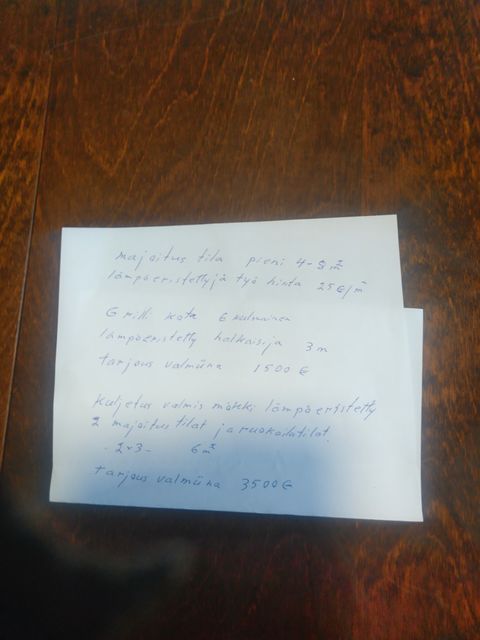 majoitus tila pieni 4-8 m²
lämpöeristettyjä työ hinta 25 €/m²
Grilli kota 6 kulmainen
lämpöeristetty halkaisija 3 m
tarjous valmiina 1500 €
kuljetus valmis mökki lämpöeristetty
2 majoitus tilat ja ruokailutilat.
- 2x3 - 6 m²
tarjous valmiina 3500 €